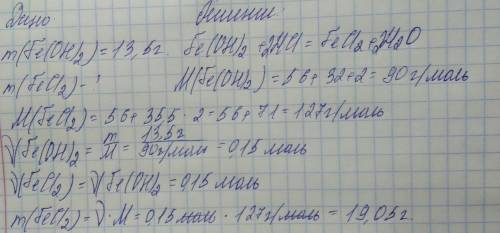 Дано: Решение:
m(Fe(OH)₂) = 13,5г. Fe(OH)₂ + 2HCl = FeCl₂ + 2H₂O
m(FeCl₂) - ? M(Fe(OH)₂) = 56 + 32 + 2 = 90 г/моль
M(FeCl₂) = 56 + 35,5 · 2 = 56 + 71 = 127 г/моль
√Fe(OH)₂ = m/M = 13,5г/90г/моль = 0,15 моль
√(FeCl₂) = √(Fe(OH)₂ = 0,15 моль
m(FeCl₂) = √ · M = 0,15 моль · 127 г/моль = 19,05 г.